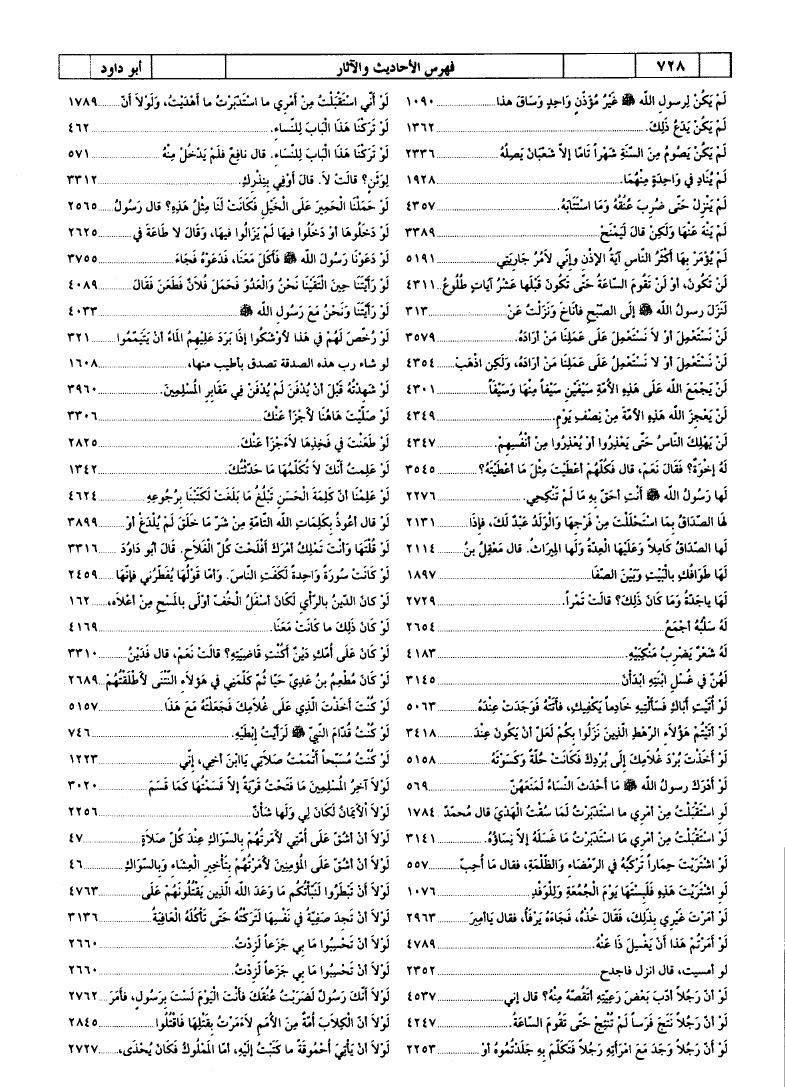 ٧٢٨ فهرس الأحاديث والآثار أبو داود
لَمْ يَكُنْ لِرسولِ اللَّه ﷺ غَيْرُ مُؤَذِّنٍ وَاحِدٍ وَسَاقَ هذا ... ١٠٩٠
لَمْ يَكُنْ يَدَعُ ذَلِكَ. ... ١٣٦٢
لَمْ يَكُنْ يَصُومُ مِنَ السَّنَةِ شَهْراً تَامّاً إلاَّ شَعْبَانَ يَصِلُهُ ... ٢٣٣٦
لَمْ يُنَادِ في وَاحِدَةٍ مِنْهُمَا. ... ١٩٢٨
لَمْ يَنْزِلْ حَتَّى ضُرِبَ عُنُقُهُ وَمَا اسْتَتَابَهُ. ... ٤٣٥٧
لَمْ يَنْهَ عَنْهَا وَلَكِنْ قالَ لَيُسْنَحْ ... ٣٣٨٩
لَمْ يُؤْمَرْ بِهَا أَكْثَرُ النَّاسِ آيَةُ الإذْنِ وإنِّي لآمُرُ جَارِيَتِي ... ٥١٩١
لَنْ تَكُونَ، أوْ لَنْ تَقُومَ السَّاعَةُ حَتَّى تَكُونَ قَبْلَهَا عَشْرُ آيَاتٍ طُلُوعُ ... ٤٣١١
لَنَزَلَ رسولُ اللَّه ﷺ إلَى الصُّبْحِ فأنَاخَ وَنَزَلْتُ عَنْ ... ٣١٣
لَنْ نَسْتَعْمِلَ أوْ لاَ نَسْتَعْمِلُ عَلَى عَمَلِنَا مَنْ أرَادَهُ. ... ٣٥٧٩
لَنْ نَسْتَعْمِلَ أوْ لاَ نَسْتَعْمِلُ عَلَى عَمَلِنَا مَنْ أرَادَهُ، وَلَكِن اذْهَبْ ... ٤٣٥٤
لَنْ يَجْمَعَ اللَّه عَلَى هَذِهِ الأُمَّةِ سَيْفَيْنِ سَيْفاً مِنْهَا وَسَيْفاً ... ٤٣٠١
لَنْ يَعْجِزَ اللَّه هَذِهِ الأُمَّةَ مِنْ نِصْفِ يَوْمٍ. ... ٤٣٤٩
لَنْ يَهْلِكَ النَّاسُ حَتَّى يَعْذِرُوا أوْ يُعْذِرُوا مِنْ أنْفُسِهِمْ. ... ٤٣٤٧
لَهُ إخْوَةٌ؟ فَقَالَ نَعَمْ، قال فَكُلَّهُمْ أعْطَيْتَ مِثْلَ مَا أعْطَيْتَهُ؟ ... ٣٥٤٥
لَها رَسُولُ اللَّه ﷺ أنْتِ أحَقُّ بِهِ مَا لَمْ تَنْكِحِي. ... ٢٢٧٦
لَها الصَّدَاقُ بِمَا اسْتَحْلَلْتَ مِنْ فَرْجِهَا وَالْوَلَدُ عَبْدٌ لَكَ، فإذَا ... ٢١٣١
لَها الصَّدَاقُ كَامِلاً وَعَلَيْهَا العِدَّةُ وَلَها المِيرَاثُ. قال مَعْقِلُ بنُ ... ٢١١٤
لَهَا طَوَافُكِ بالْبَيْتِ وَبَيْنَ الصَّفَا ... ١٨٩٧
لَهَا يَاجَدَّةُ وَمَا كَانَ ذَلِكَ؟ قالَتْ تَمْراً. ... ٢٧٢٩
لَهُ سَلَبُهُ أجْمَعُ ... ٢٦٥٤
لَهُ شَعْرٌ يَضْرِبُ مَنْكِبَيْهِ. ... ٤١٨٣
لَهُنَّ في غُسْلِ ابْنَتِهِ ابْدَأْنَ ... ٣١٤٥
لَوْ أتَيْتِ أبَاكِ فَسَألْتِيهِ خَادِماً يَكْفِيكِ، فأتَتْهُ فَوَجَدَتْ عِنْدَهُ ... ٥٠٦٣
لَوْ أتَيْتُمْ هَؤُلاَءِ الرَّهْطَ الَّذِينَ نَزَلُوا بِكُم لَعَلَّ أنْ يَكُونَ عِنْدَ ... ٣٤١٨
لَوْ أخَذْتَ بُرْدَ غُلاَمِكَ إلَى بُرْدِكَ فَكَانَتْ حُلَّةً وَكَسَوْتَهُ ... ٥١٥٨
لَوْ أدْرَكَ رسولُ اللَّه ﷺ مَا أحْدَثَ النِّسَاءُ لَمَنَعَهُنَّ ... ٥٦٩
لَوِ اسْتَقْبَلْتُ مِنْ أمْرِي ما اسْتَدْبَرْتُ لَمَا سُقْتُ الْهَدْيَ قال مُحمَّدٌ ... ١٧٨٤
لَوِ اسْتَقْبَلْتُ مِنْ أمْرِي مَا اسْتَدْبَرْتُ مَا غَسَلَهُ إلاَّ نِسَاؤُهُ. ... ٣١٤١
لَوِ اشْتَرَيْتَ حِمَاراً تَرْكَبُهُ في الرَّمْضَاءِ وَالظُّلْمَةِ، فقال مَا أُحِبُّ ... ٥٥٧
لَوِ اشْتَرَيْتَ هَذِهِ فَلَبِسْتَهَا يَوْمَ الْجُمُعَةِ وَلِلْوَفْدِ ... ١٠٧٦
لَوْ أمَرْتَ غَيْرِي بِذَلِكَ، فَقَالَ خُذْهُ، فَجَاءَهُ يَرْفَأُ، فقال يَاأمِيرَ ... ٢٩٦٣
لَوْ أمَرْتُمْ هَذَا أنْ يَغْسِلَ ذَا عَنْهُ. ... ٤٧٨٩
لو أمسيت، قال انزل فاجدح ... ٢٣٥٢
لَوْ أنَّ رَجُلاً أدَّبَ بَعْضَ رَعِيَّتِهِ أتَقُصُّهُ مِنْهُ؟ قال إِي ... ٤٥٣٧
لَوْ أنَّ رَجُلاً نَتَجَ فَرَساً لَمْ تُنْتَجْ حَتَّى تَقُومَ السَّاعَةُ. ... ٤٢٤٧
لَوْ أنَّ رَجُلاً وَجَدَ مَعَ امْرَأتِهِ رَجُلاً فَتَكَلَّمَ بِهِ جَلَدْتُمُوهُ أوْ ... ٢٢٥٣
لَوْ أنِّي اسْتَقْبَلْتُ مِنْ أمْرِي ما اسْتَدْبَرْتُ ما أهْدَيْتُ، وَلَوْلاَ أنَّ ... ١٧٨٩
لَوْ تَرَكْنَا هَذَا الْبَابَ لِلنِّسَاءِ. ... ٤٦٢
لَوْ تَرَكْنَا هَذَا الْبَابَ لِلنِّسَاءِ. قال نَافِعٌ فلَمْ يَدْخُلْ مِنْهُ ... ٥٧١
لِوَثَنٍ؟ قالَتْ لاَ. قالَ أوْفِي بِنَذْرِكِ. ... ٣٣١٢
لَوْ حَمَلْنَا الْحَمِيرَ عَلَى الْخَيْلِ فَكَانَتْ لَنَا مِثْلُ هَذِهِ؟ قال رَسُولُ ... ٢٥٦٥
لَوْ دَخَلُوهَا أوْ دَخَلُوا فيهَا لَمْ يَزَالُوا فيهَا، وَقَالَ لاَ طَاعَةَ في ... ٢٦٢٥
لَوْ دَعَوْنَا رَسُولَ اللَّه ﷺ فَأكَلَ مَعَنَا، فَدَعَوْهُ فَجَاءَ ... ٣٧٥٥
لَوْ رَأيْتَنَا حِينَ الْتَقَيْنَا نَحْنُ وَالعَدُوّ فَحَمَلَ فُلاَنٌ فَطَعَنَ فَقَالَ ... ٤٠٨٩
لَوْ رَأيْتَنَا وَنَحْنُ مَعَ رَسُولِ اللَّه ﷺ ... ٤٠٣٣
لَوْ رُخِّصَ لَهُمْ في هَذَا لأوْشَكُوا إذَا بَرَدَ عَلَيْهِمُ المَاءُ أنْ يَتَيَمَّمُوا ... ٣٢١
لو شاء رب هذه الصدقة تصدق بأطيب منها، ... ١٦٠٨
لَوْ شَهِدْتُهُ قَبْلَ أنْ يُدْفَنَ لَمْ يُدْفَنْ في مَقَابِرِ المُسْلِمِينَ. ... ٣٩٦٠
لَوْ صَلَّيْتَ هَاهُنَا لأجْزَأَ عَنْكَ ... ٣٣٠٦
لَوْ طَعَنْتَ في فَخِذِهَا لأجْزَأ عَنْكَ. ... ٢٨٢٥
لَوْ عَلِمْتُ أنَّكَ لاَ تُكَلِّمُهَا مَا حَدَّثْتُكَ. ... ١٣٤٢
لَوْ عَلِمْنَا أنَّ كَلِمَةَ الْحَسَنِ تَبْلُغُ مَا بَلَغَتْ لَكَتَبْنَا بِرُجُوعِهِ ... ٤٦٢٤
لَوْ قال أعُوذُ بِكَلِمَاتِ اللَّه التَّامَّةِ مِنْ شَرِّ مَا خَلَقَ لَمْ يُلْدَغْ أوْ ... ٣٨٩٩
لَوْ قُلْتَهَا وَأنْتَ تَمْلِكُ أمْرَكَ أفْلَحْتَ كُلَّ الْفَلاَحِ. قالَ أبُو دَاوُدَ ... ٣٣١٦
لَوْ كَانَتْ سُورَةٌ وَاحِدَةٌ لَكَفَتِ النَّاسَ. وَأمَّا قَوْلُهَا يُفَطِّرُنِي فإنَّهَا ... ٢٤٥٩
لَوْ كَانَ الدِّينُ بالرَّأْيِ لَكَانَ أسْفَلُ الْخُفِّ أوْلَى بالْمَسْحِ مِنْ أعْلاَهُ، ... ١٦٢
لَوْ كَانَ ذَلِكَ ما كَانَتْ مَعَنَا. ... ٤١٦٩
لَوْ كَانَ عَلَى أُمِّكِ دَيْنٌ أكُنْتِ قَاضِيَتِهِ؟ قالَتْ نَعَمْ، قال فَدَيْنُ ... ٣٣١٠
لَوْ كَانَ مُطْعِمُ بنُ عَدِيٍّ حَيّاً ثُمَّ كَلَّمَنِي في هَؤُلاَءِ النَّتْنَى لأطْلَقْتُهُمْ ... ٢٦٨٩
لَوْ كُنْتَ أخَذْتَ الَّذِي عَلَى غُلاَمِكَ فَجَعَلْتَهُ مَعَ هَذَا ... ٥١٥٧
لَوْ كُنْتُ قُدَّامَ النَّبِيِّ ﷺ لَرَأيْتُ إبْطَيْهِ. ... ٧٤٦
لَوْ كُنْتُ مُسَبِّحاً أتْمَمْتُ صَلاَتِي يَاابنَ أخِي، إنِّي ... ١٢٢٣
لَوْلاَ آخِرُ المُسْلِمِينَ مَا فَتَحْتُ قَرْيَةً إلاَّ قَسَمْتُهَا كَمَا قَسَمَ ... ٣٠٢٠
لَوْلاَ الأيْمَانُ لَكَانَ لِي وَلَها شَأنٌ ... ٢٢٥٦
لَوْلاَ أنْ أشُقَّ عَلَى أُمَّتِي لأمَرْتُهُمْ بالسِّوَاكِ عِنْدَ كُلِّ صَلاَةٍ ... ٤٧
لَوْلاَ أنْ أشُقَّ عَلَى المُؤْمِنِينَ لأمَرْتُهُمْ بِتَأْخِيرِ الْعِشَاءِ وَبِالسِّوَاكِ ... ٤٦
لَوْلاَ أنْ تَبْطَرُوا لَنَبَّأْتُكُم مَا وَعَدَ اللَّه الَّذِينَ يَقْتُلُونَهُمْ عَلَى ... ٤٧٦٣
لَوْلاَ أنْ تَجِدَ صَفِيَّةُ في نَفْسِهَا لَتَرَكْتُهُ حَتَّى تَأْكُلَهُ الْعَافِيَةُ ... ٣١٣٦
لَوْلاَ أنْ تَحْسِبُوا مَا بِي جَزَعاً لَزِدْتُ. ... ٢٦٦٠
لَوْلاَ أنْ تَحْسِبُوا مَا بِي جَزَعاً لَزِدْتُ. ... ٢٦٦٠
لَوْلاَ أنَّكَ رَسُولٌ لَضَرَبْتُ عُنُقَكَ فَأنْتَ الْيَوْمَ لَسْتَ بِرَسُولٍ، فأمَرَ ... ٢٧٦٢
لَوْلاَ أنَّ الْكِلاَبَ أُمَّةٌ مِنَ الأُمَمِ لأمَرْتُ بِقَتْلِهَا فَاقْتُلُوا ... ٢٨٤٥
لَوْلاَ أنْ يَأْتِيَ أُحْمُوقَةً ما كَتَبْتُ إلَيْهِ، أمَّا المَمْلُوكُ فَكَانَ يُحْذَى، ... ٢٧٢٧